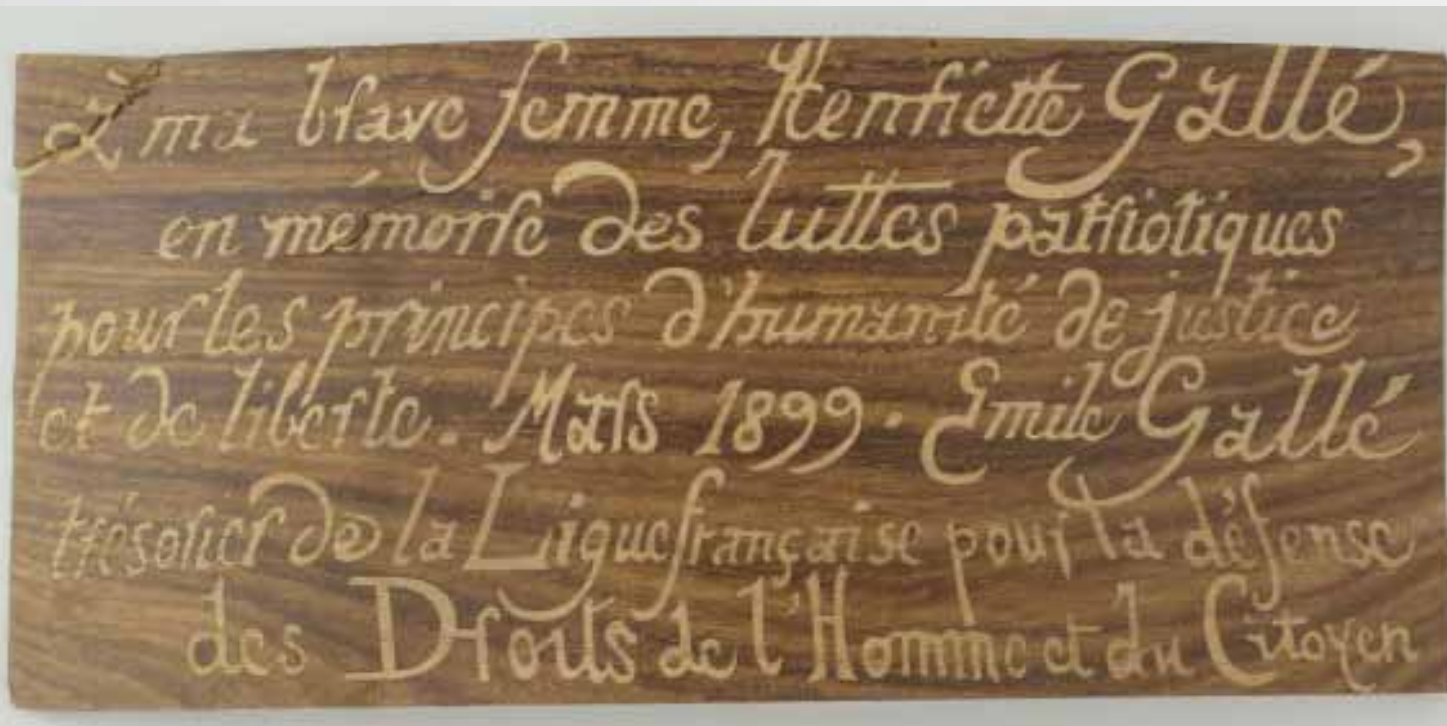 à ma brave femme, Henriette Gallé,
en mémoire des luttes patriotiques
pour les principes d'humanité de justice
et de liberté. Mars 1899. Emile Gallé
trésorier de la Ligue française pour la défense
des Droits de l'Homme et du Citoyen